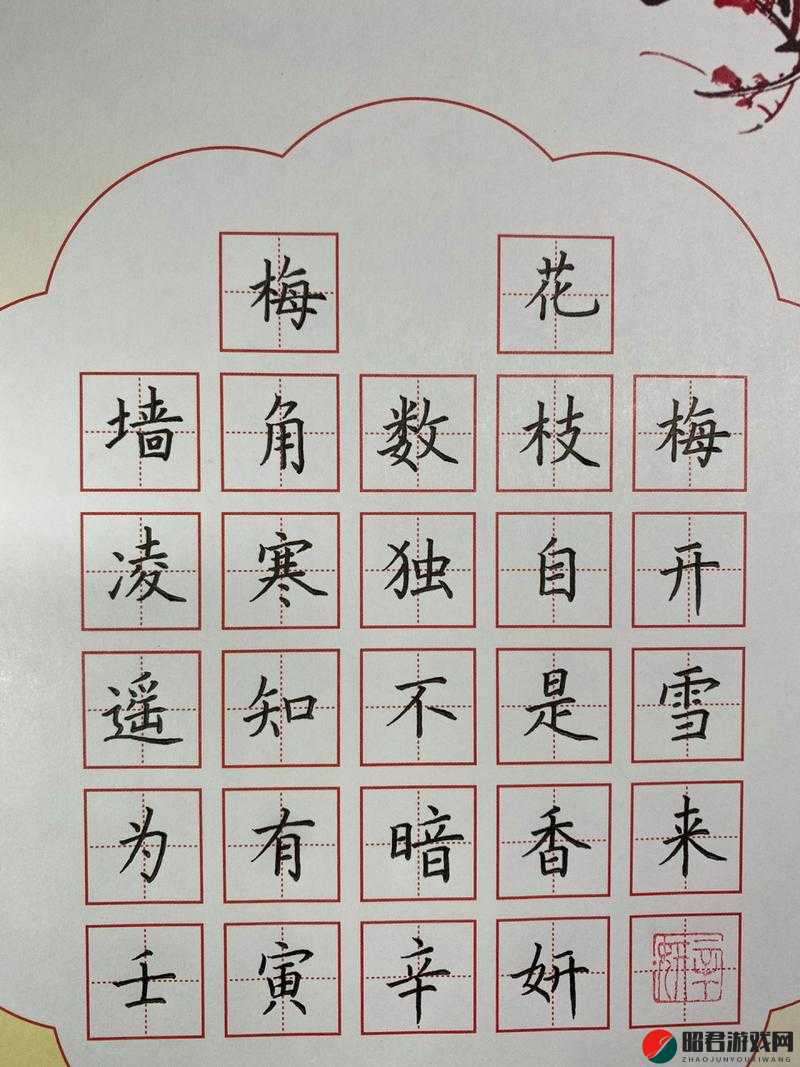 梅花
墙角数枝梅
凌寒独自开
遥知不是雪
为有暗香来
壬寅辛妍
昭君游戏网
ZHAOJUNYOUXIWANG